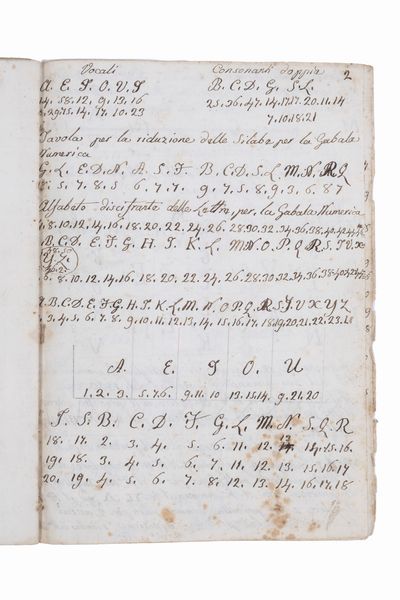 Vocali Consonanti doppie 2
A. E. I. O. V. I B. C. D. G. S. L.
14. 58. 12. 9. 13. 16 25. 36. 47. 14. 17.17. 20. 11. 14
14. 17. 10. 23 7. 10. 18. 21
Tavola per la riduzione delle Silabe per la Gabala
Numerica
G. L. E. D. N. A. S. F. B. C. D. S. L. M. N. R. Q
5. 7. 8. 5 6. 7. 7. 9. 7. 5. 8. 9. 3. 6. 8 7
Alfabeto discifrante delle Lettre, per, la Gabala Numerica
8. 10. 12. 14. 16. 18. 20. 22. 24. 26. 28. 30. 32. 34. 36. 38. 40.
B. C. D. E. F. G. H. I. K. L. M. N. O. P. Q. R. S. T. V. X
Y. Z.
6. 8. 10. 12. 14. 16. 18. 20. 22. 24. 26. 28. 30. 32. 34. 36. 38. 40.
A. B. C. D. E. F. G. H. I. K. L. M. N. O. P. Q. R. S. T. V. X. Y. Z
3. 4. 5. 6. 7. 8. 9. 10. 11. 12. 13. 14. 15. 16. 17. 18. 19. 20. 21. 22. 23.
A. E. I. O. U
1. 2. 3. 5. 7. 6. 9. 11. 10 13. 15. 14. 9. 21. 20
I. S. B. C. D. F. G. L. M. N. S. Q. R
18. 17. 2. 3. 4. 5. 6. 11. 12. 13 14. 15. 16.
19. 18. 3. 4. 5. 6. 7. 11. 12. 13. 15. 16. 17
20. 19. 4. 5. 6. 7. 8. 12. 13. 14. 16. 17. 18